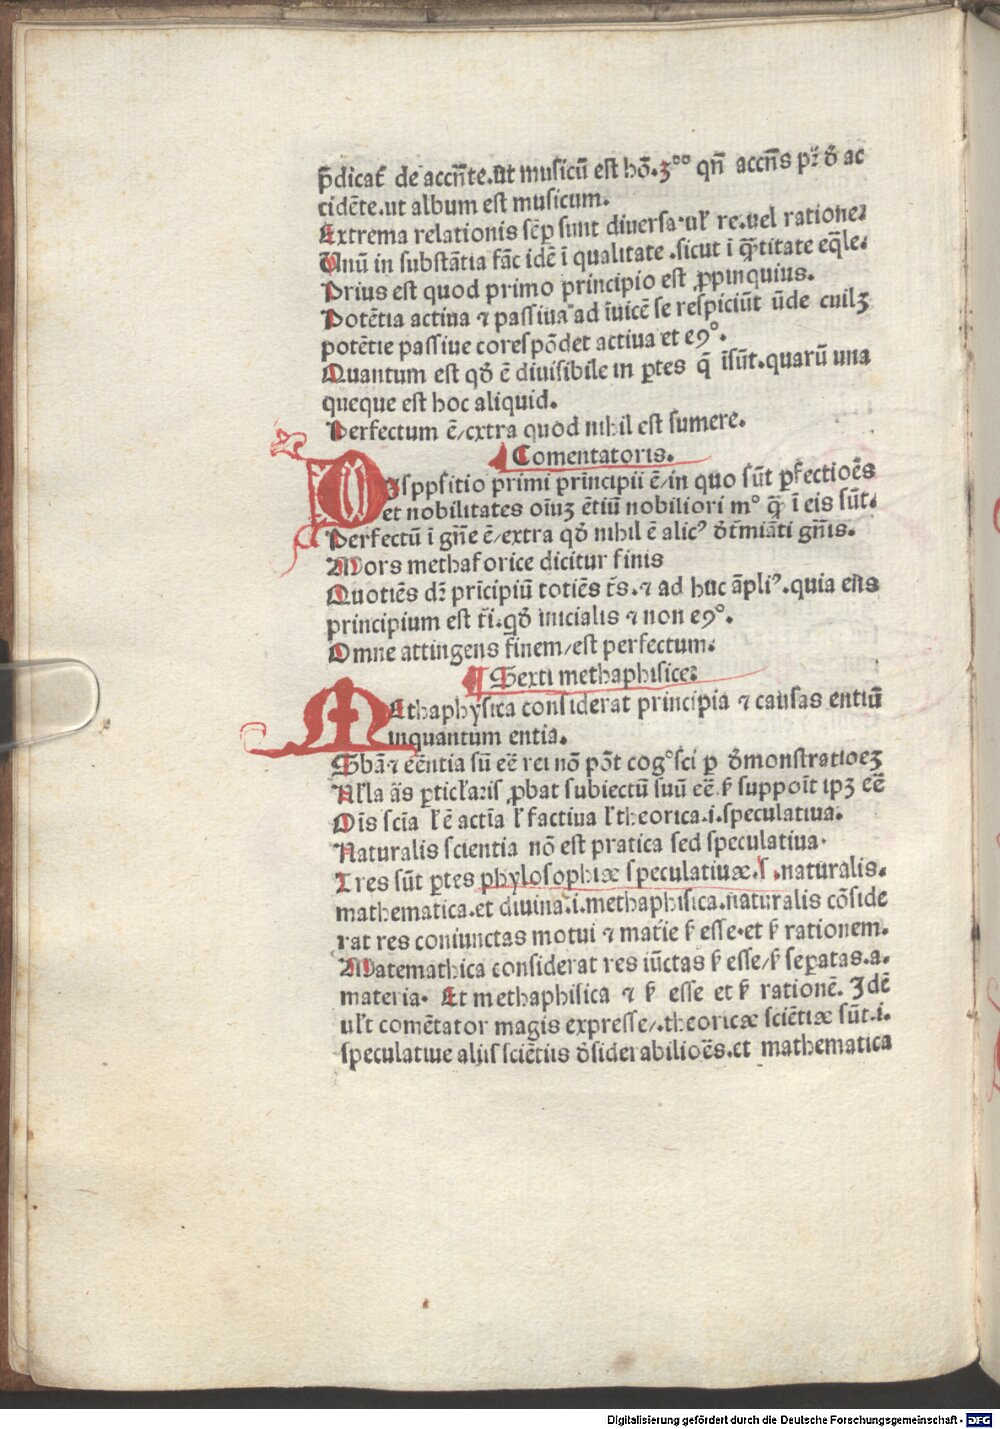 p̄dicat᷑ de accn̄te.ut musicū est hō.3°° qn̄ accn̄s pꝛ̄ đ ac
cidēte.ut album est musicum.
Extrema relationis sēꝑ sunt diuersa.ul' re.uel ratione:
Unū in substātia fāc idē ī qualitate .sicut ī q̄titate eq̄le:
Prius est quod primo principio est ꝓpinquius.
Potētia actiua ⁊ passiua ad īuicē se respiciūt ūde cuilꝫ
potētie passiue corespōdet actiua et eꝯ°.
Quantum est qđ ē diuisibile in ꝑtes q̄ īsūt.quarū una
queque est hoc aliquid.
Perfectum ē/extra quod nihil est sumere.
Comentatoris.
DIsppſitio primi principii ē/in quo sūt ꝑfectioēs
et nobilitates oīuꝫ ētiū nobiliori m° q̄ ī eis sūt.
Perfectū ī gn̄e ē/extra qđ nihil ē alicꝰ đt᷑miāti gn̄is.
Mors methaforice dicitur finis
Quotiēs dꝛ̄ prīcipiū totiēs t᷑s.⁊ ad huc āpliꝰ.quia ens
principium est t᷑i.qđ inicialis ⁊ non eꝯ°.
Omne attingens finem/est perfectum:
¶ Sexti methaphisice:
MEthaphysica considerat principia ⁊ causas entiū
inquantum entia.
Sbā ⁊ eēntia siū eē rei nō pōt cog°sci ꝑ đmonstratioeꝫ
Nl'la ās ꝑticl'aꝛis ꝓbat subiectū suū eē ẜ suppoīt ipꝫ eē
Oīs scīa l' ē actīa l' factiua l' theorica.i.speculatiua.
Naturalis scientia nō est pratica sed speculatiua.
Tres sūt ꝑtes phylosophiæ speculatiuæ.s .naturalis.
mathematica.et diuina.i.methaphisica.naturalis cōside
rat res coniunctas motui ⁊ mat᷑ie ẜ esse.et ẜ rationem.
Matemathica considerat res iūctas ẜ esse/ẜ seꝑatas.a.
materia. Et methaphisica ⁊ ẜ esse et ẜ rationē. Idē
ul't comētator magis expresse/.theoricæ sciētiæ sūt.i.
speculatiue aliis sciētiis đsiderabilioēs.et mathematica
Digitalisierung gefördert durch die Deutsche Forschungsgemeinschaft - DFG